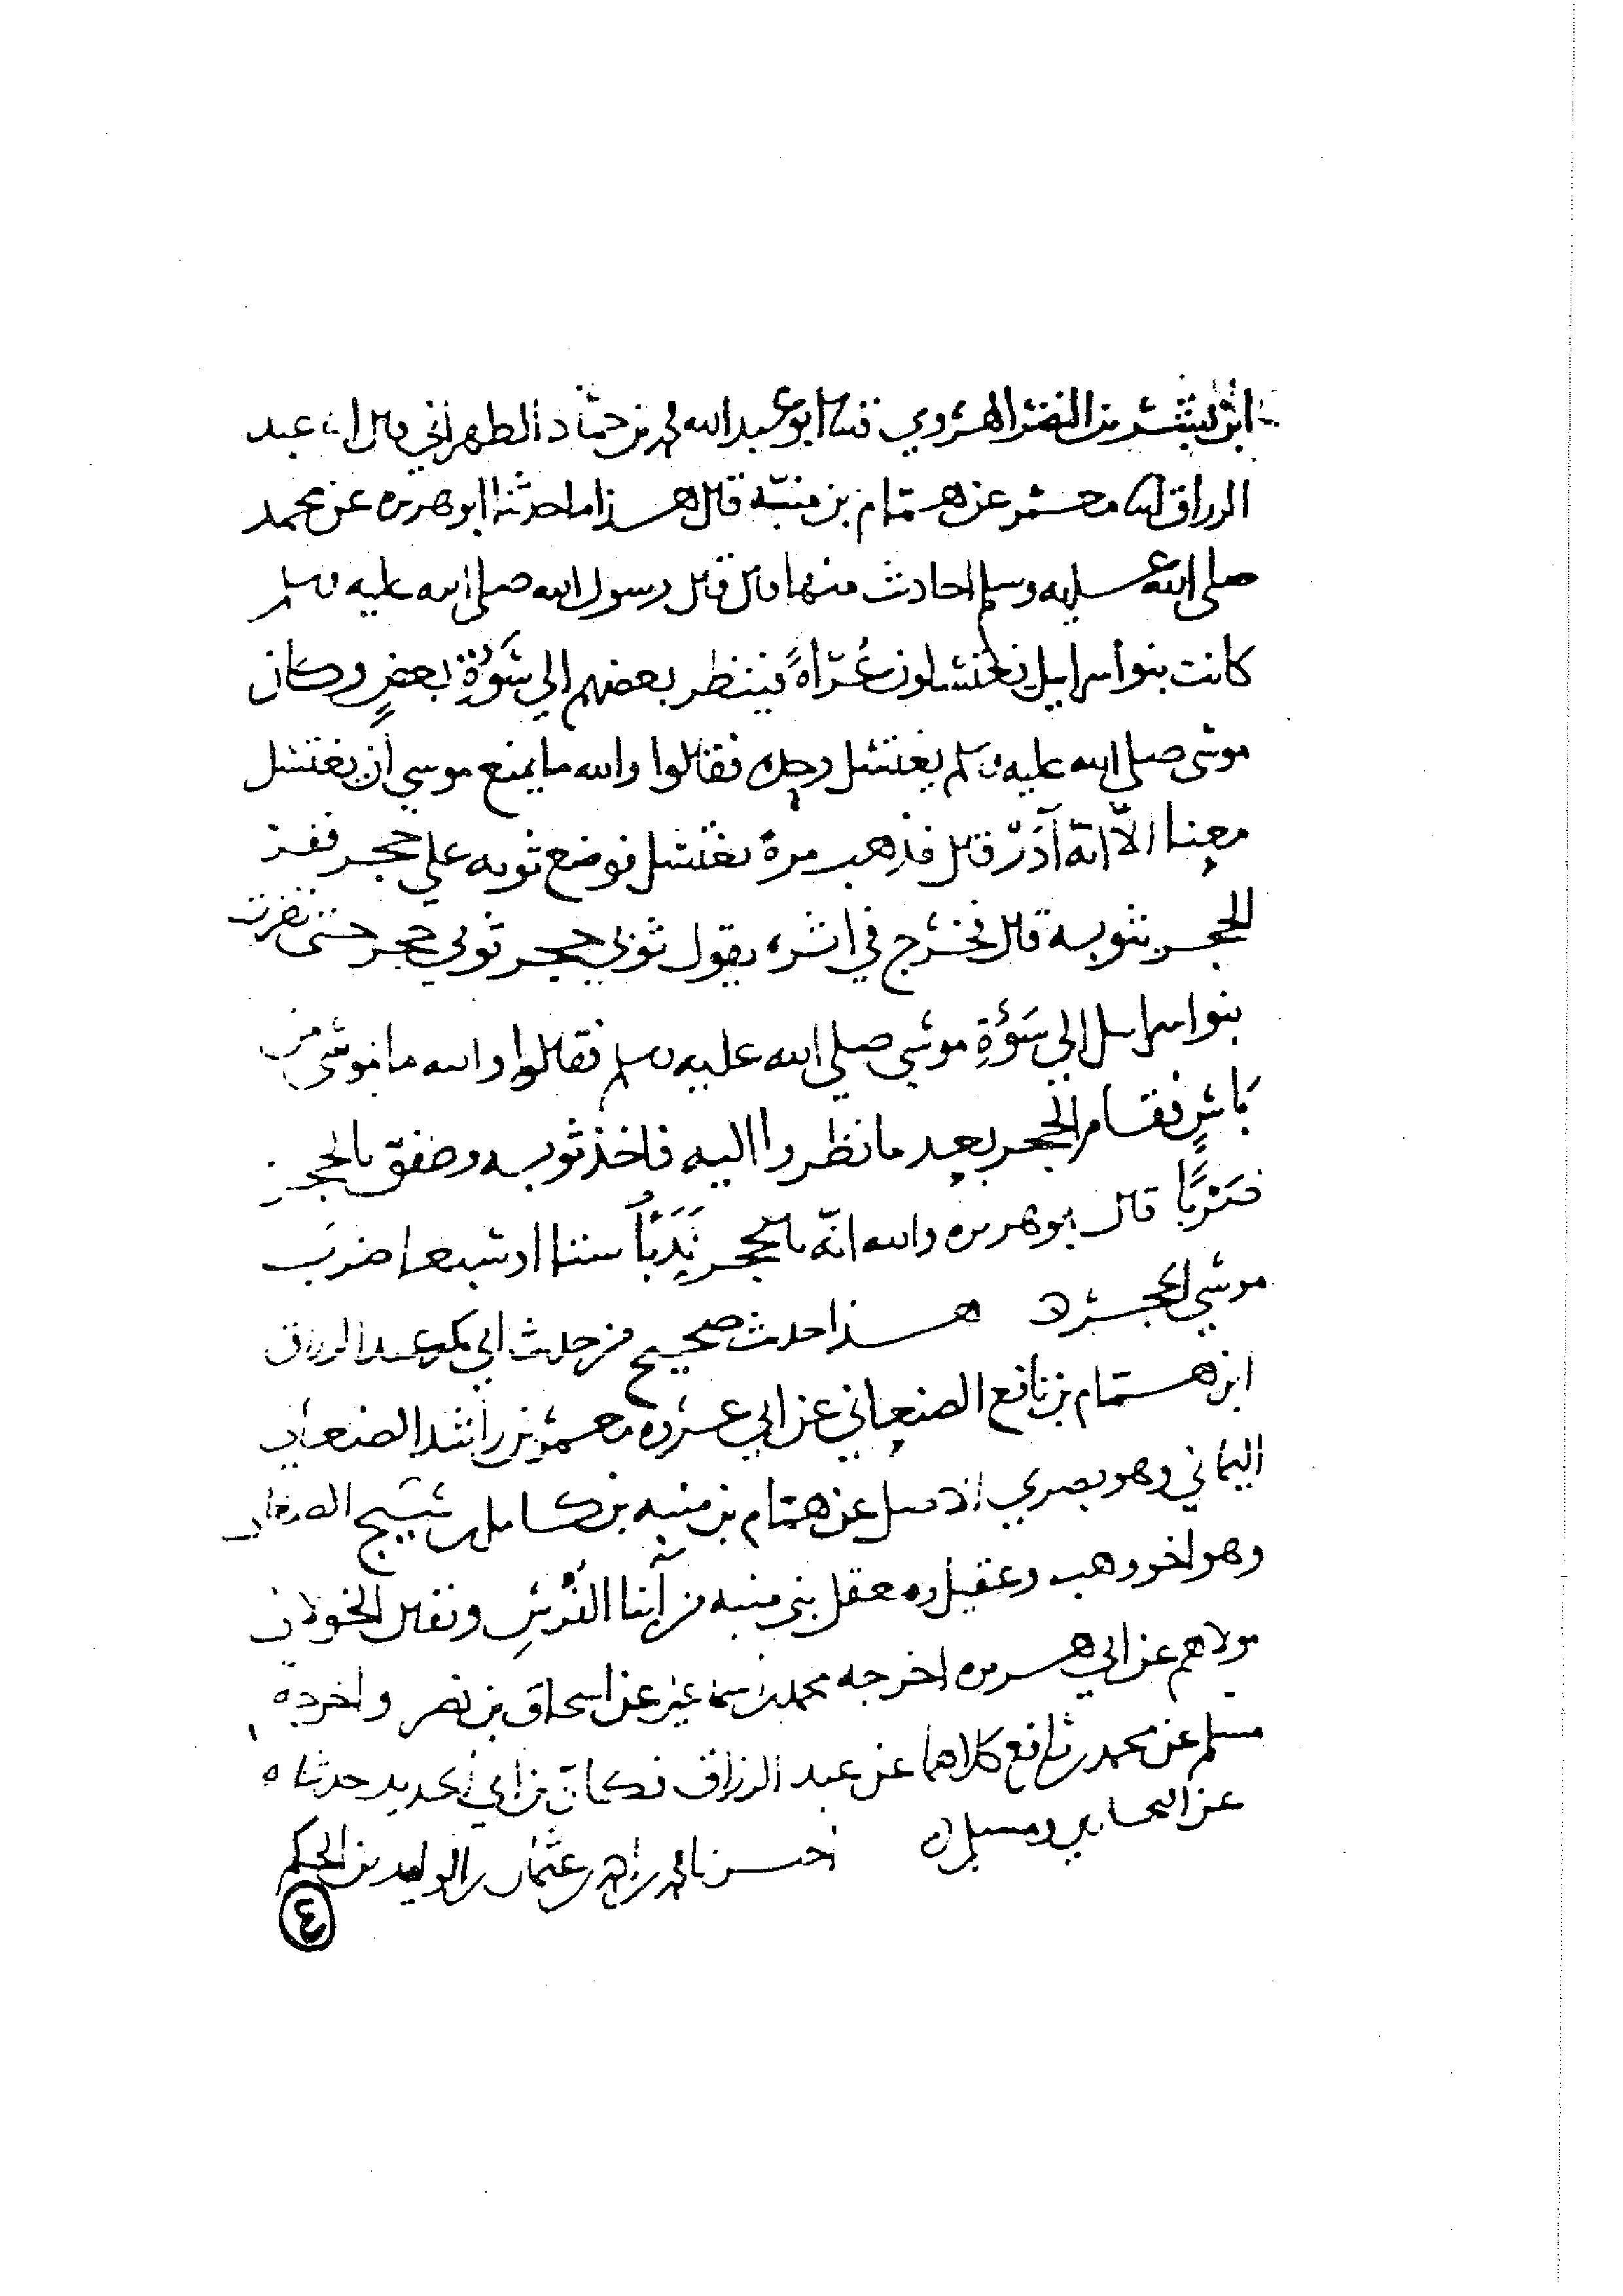 ابن بشر بن النضر الهروي ثنا ابو عبد الله محمد بن حماد الطهراني قال انا عبد
الرزاق انا معمر عن همام بن منبه قال هذا ما حدثنا ابو هريرة عن محمد
صلى الله عليه وسلم احاديث منها قال قال رسول الله صلى الله عليه وسلم
كانت بنو اسرايل يغتسلون عُرَاةً فينظر بعضهم الي سَوْءَةِ بعضٍ وكان
موسى صلى الله عليه وسلم يغتسل وحده فقالوا والله ما يمنع موسي أن يغتسل
معنا الّا انه آدَرُ قال فذهب مرة يغتسل فوضع ثوبه علي حجر ففر
الحجر بثوبه قال فخرج في اثره يقول ثوبي حجر ثوبي حجر حتى نظرت
بنو اسرايل الي سَوْءَةِ موسى صلى الله عليه وسلم فقالوا والله ما بموسى من
بَاسٍ فقام الحجر بعد ما نظروا اليه فاخذ ثوبه وطفق بالحجر
ضَرْبًا قال ابو هريرة والله انّه بالحجر نَدَبًا ستا او سبعا ضرب
موسي الحجر ه هذا حديث صحيح من حديث ابي بكر عبد الرزاق
ابن همام بن نافع الصنعاني عن ابي عروة معمر بن راشد الصنعاني
اليماني وهو بصري الاصل عن همام بن منبه بن كامل بن سَيْج الصنعاني
وهو اخو وهب وعقيل ومعقل بني منبه من أبنا الفُرْسِ ويقال الخولاني
مولاهم عن ابي هريرة اخرجه محمد بن اسماعيل عن اسحاق بن نصر واخرجه
مسلم عن محمد بن رافع كلاهما عن عبد الرزاق فكان بن ابي الحديد حدثناه
عن البخاري ومسلم ه اخبرنا محمد بن احمد بن عثمان بن الوليد بن الحكم
٤